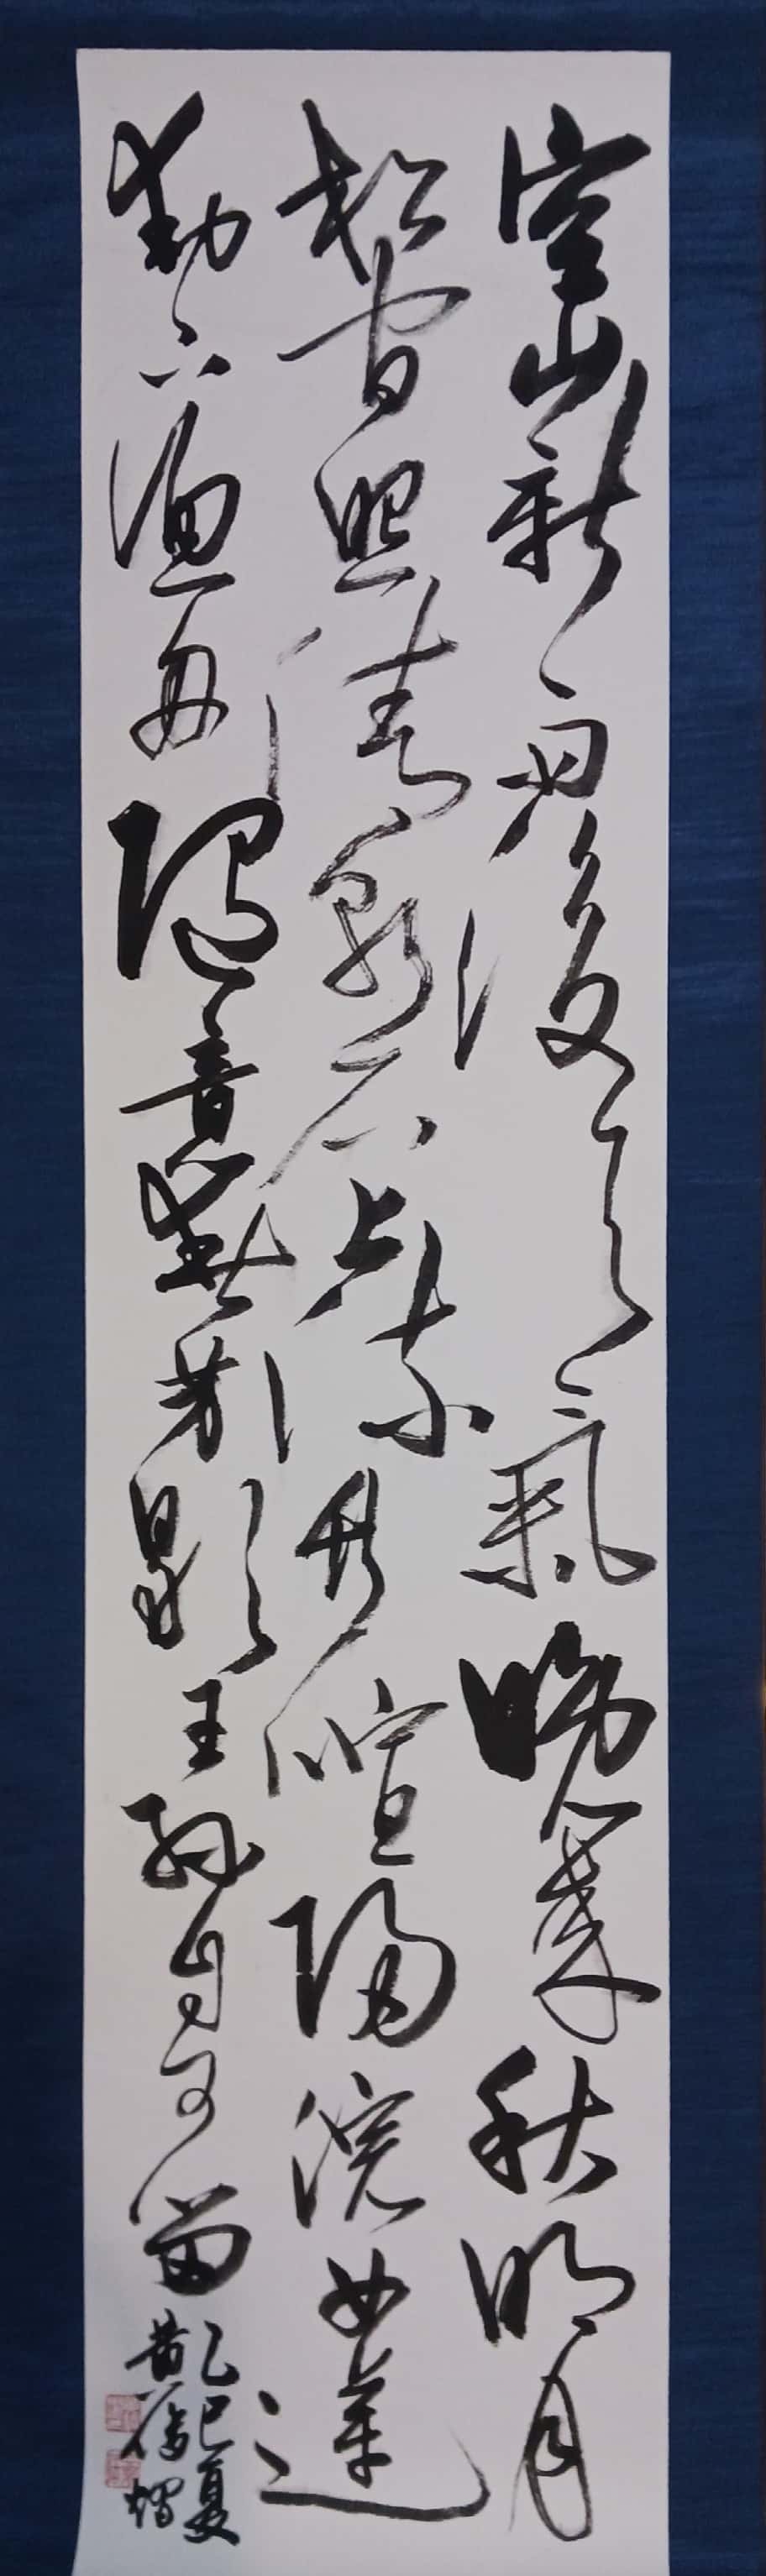 空山新雨後天氣晚來秋明月
松間照清泉石上流竹喧歸浣女蓮
動下漁舟隨意春芳歇王孫自可留
乙巳夏
黃